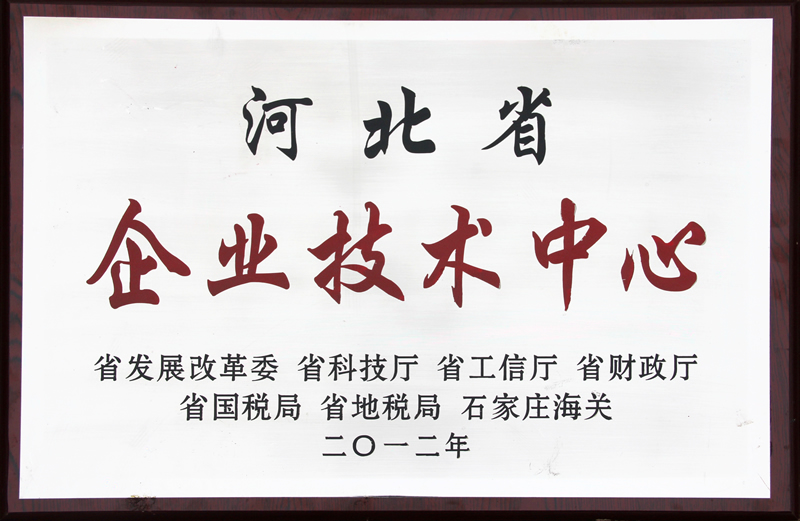 河北省
企业技术中心
省发展改革委 省科技厅 省工信厅 省财政厅
省国税局 省地税局 石家庄海关
二〇一二年